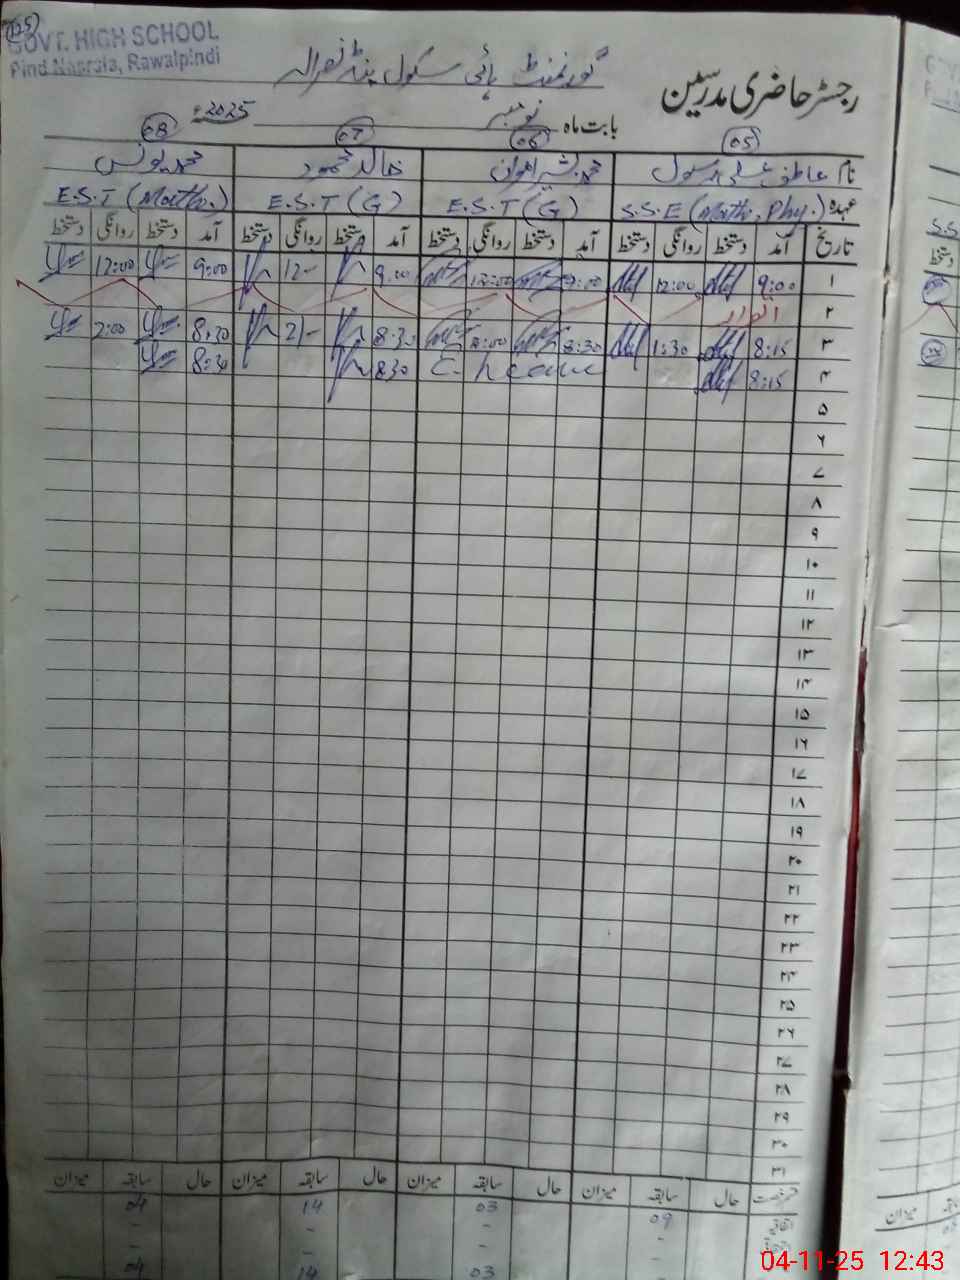 GOVT. HIGH SCHOOL
Pind Nasrala, Rawalpindi
گورنمنٹ ہائی سکول پنڈ نصرالہ
رجسٹر حاضری مدرسین
بابت ماہ نومبر 2025ء
05 06 07 08
نام محمد بشیر اعوان خالد محمود محمد یونس
عہدہ S.S.E (Math, Phy.) E.S.T (G) E.S.T (G) E.S.T (Math.)
تاریخ آمد دستخط روانگی دستخط آمد دستخط روانگی دستخط آمد دستخط روانگی دستخط آمد دستخط روانگی دستخط
۱ 9:00 12:00 12:00 12- 9:00 12:00
۲ اتوار
۳ 8:15 1:30 8:30 8:30 2/- 8:30 2:00
۴ 8:15 C. leave 830 8:30
۵
۶
۷
۸
۹
۱۰
۱۱
۱۲
۱۳
۱۴
۱۵
۱۶
۱۷
۱۸
۱۹
۲۰
۲۱
۲۲
۲۳
۲۴
۲۵
۲۶
۲۷
۲۸
۲۹
۳۰
۳۱
قسم رخصت حال سابقہ میزان حال سابقہ میزان حال سابقہ میزان حال سابقہ میزان
اتفاقیہ 09 03 14 04
- - -
- - -
03 14 04
04-11-25 12:43